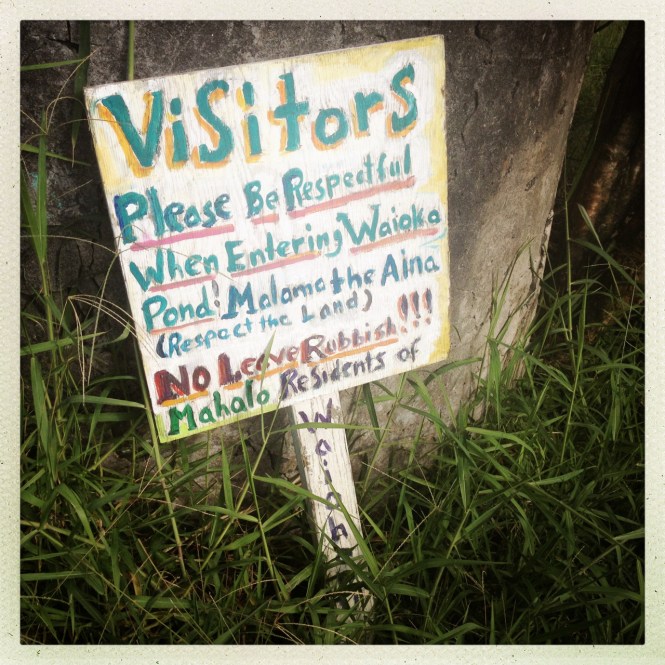 ViSitorS
Please Be Respectful
When Entering Waioka
Pond! Malama the Aina
(Respect the Land)
NO Leeve Rubbish!!!
Mahalo Residents of